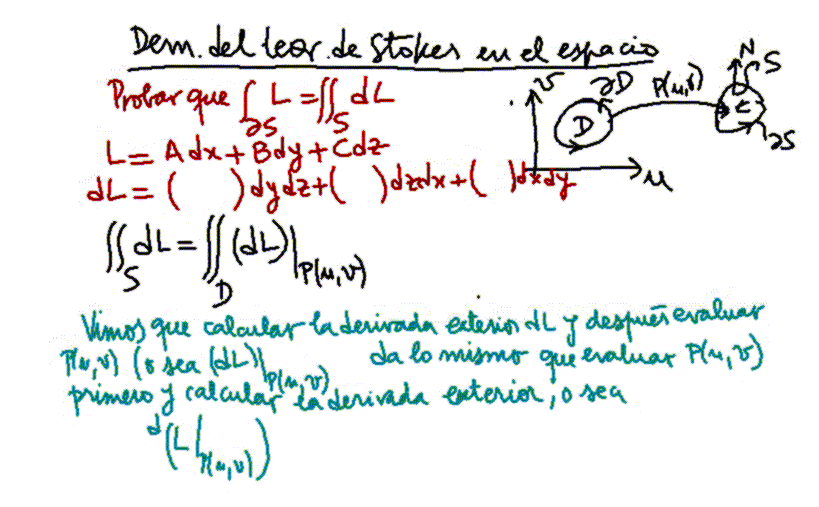 Dem. del teor. de Stokes en el espacio
Probar que ∫_∂S L = ∬_S dL
L = A dx + B dy + C dz
dL = ( ) dydz + ( ) dzdx + ( ) dxdy
v
∂D
D
u
P(u,v)
N
S
∂S
∬_S dL = ∬_D (dL)|_P(u,v)
Vimos que calcular la derivada exterior dL y después evaluar
P(u,v) (o sea (dL)|_P(u,v) da lo mismo que evaluar P(u,v)
primero y calcular la derivada exterior, o sea
d(L|_P(u,v))